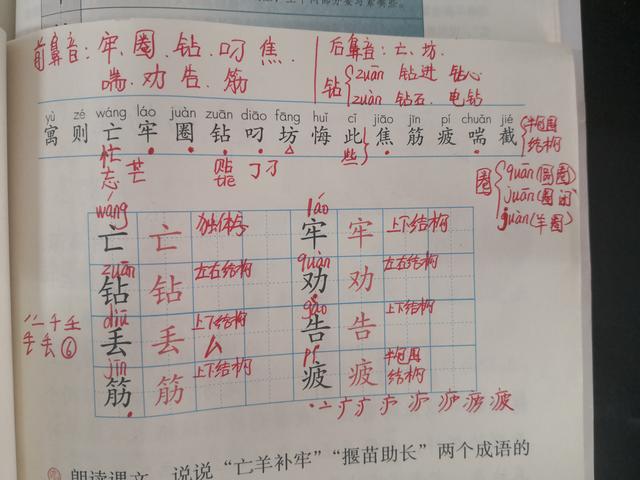 前鼻音:牢、圈、钻、叼、焦、
喘、劝、告、筋
后鼻音:亡、坊、
钻 zuān 钻进 钻心
zuàn 钻石、电钻
yù zé wáng láo juàn zuān diāo fāng huǐ cǐ jiāo jīn pí chuǎn jié
寓则亡牢圈钻叼坊悔此焦筋疲喘截
半包围
结构
忙 芒
忘
叮 刁
些
圈 quān(圆圈)
juān(圈闭)
juàn(羊圈)
wáng
亡 亡 独体字
láo
牢 牢 上下结构
zuān
钻 钻 左右结构
quàn
劝 劝 左右结构
diū
丢 丢 上下结构
gào
告 告 上下结构
丢 丢 ⑥
jīn
筋 筋 上下结构
pí
疲 疲 半包围
结构
朗读课文,说说“亡羊补牢”“揠苗助长”两个成语的